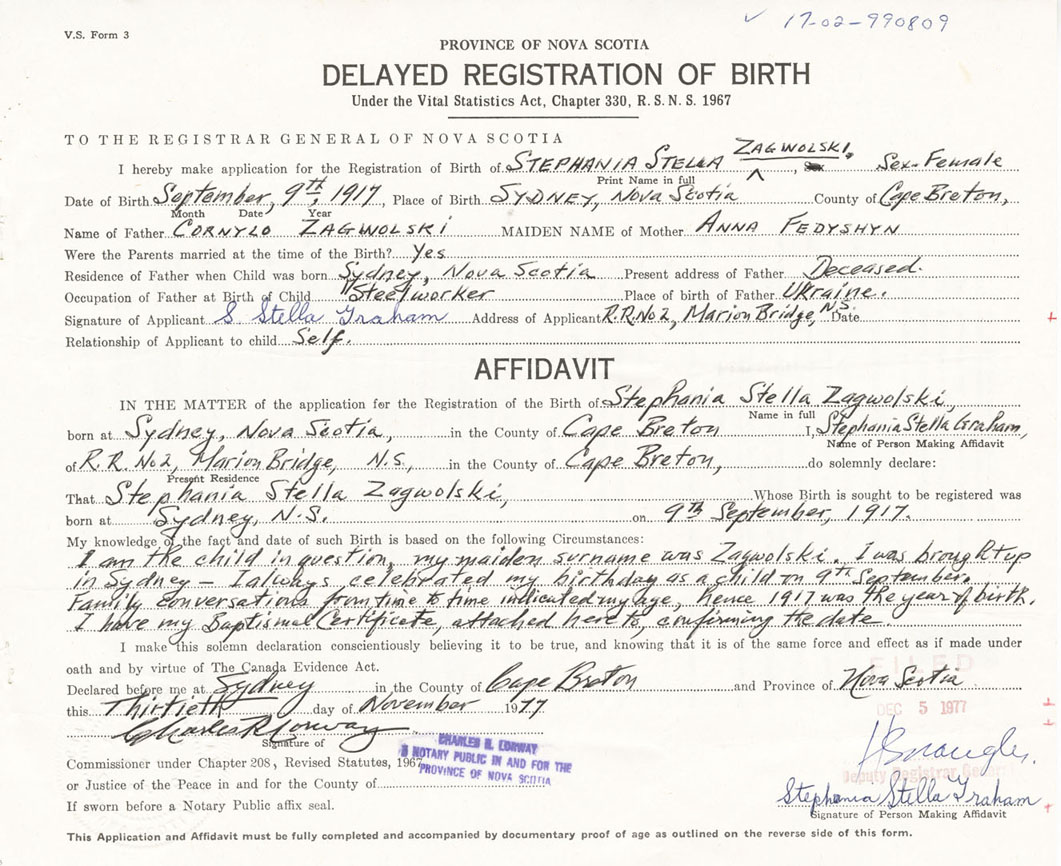 V.S. Form 3
✓ 17-02-990809
PROVINCE OF NOVA SCOTIA
DELAYED REGISTRATION OF BIRTH
Under the Vital Statistics Act, Chapter 330, R.S.N.S. 1967
TO THE REGISTRAR GENERAL OF NOVA SCOTIA
I hereby make application for the Registration of Birth of STEPHANIA STELLA ZAGWOLSKI, Sex-Female
Print Name in full
Date of Birth September, 9th, 1917, Place of Birth SYDNEY, Nova Scotia County of Cape Breton,
Month Date, Year
Name of Father CORNYLO ZAGWOLSKI MAIDEN NAME of Mother ANNA FEDYSHYN
Were the Parents married at the time of the Birth? Yes
Residence of Father when Child was born Sydney, Nova Scotia Present address of Father Deceased.
Occupation of Father at Birth of Child Steelworker Place of birth of Father Ukraine.
Signature of Applicant S Stella Graham Address of Applicant R.R. No 2, Marion Bridge, N.S. Date
Relationship of Applicant to child Self.
AFFIDAVIT
IN THE MATTER of the application for the Registration of the Birth of Stephania Stella Zagwolski,
Name in full
born at Sydney, Nova Scotia, in the County of Cape Breton I, Stephania Stella Graham,
Name of Person Making Affidavit
of R.R. No 2, Marion Bridge, N.S., in the County of Cape Breton, do solemnly declare:
Present Residence
That Stephania Stella Zagwolski, Whose Birth is sought to be registered was
born at Sydney, N.S. on 9th September, 1917.
My knowledge of the fact and date of such Birth is based on the following Circumstances:
I am the child in question, my maiden surname was Zagwolski. I was brought up
in Sydney - I always celebrated my birthday as a child on 9th September.
Family conversations from time to time indicated my age, hence 1917 was the year of birth.
I have my Baptismal Certificate, attached hereto, confirming the date
I make this solemn declaration conscientiously believing it to be true, and knowing that it is of the same force and effect as if made under
oath and by virtue of The Canada Evidence Act.
FILED
Declared before me at Sydney in the County of Cape Breton and Province of Nova Scotia
this Thirtieth day of November 1977
DEC 5 1977
Charles R Lorway
Signature of
CHARLES R. LORWAY
A NOTARY PUBLIC IN AND FOR THE
PROVINCE OF NOVA SCOTIA
Commissioner under Chapter 208, Revised Statutes, 1967
or Justice of the Peace in and for the County of
Deputy Registrar General
If sworn before a Notary Public affix seal.
Stephania Stella Graham
Signature of Person Making Affidavit
This Application and Affidavit must be fully completed and accompanied by documentary proof of age as outlined on the reverse side of this form.